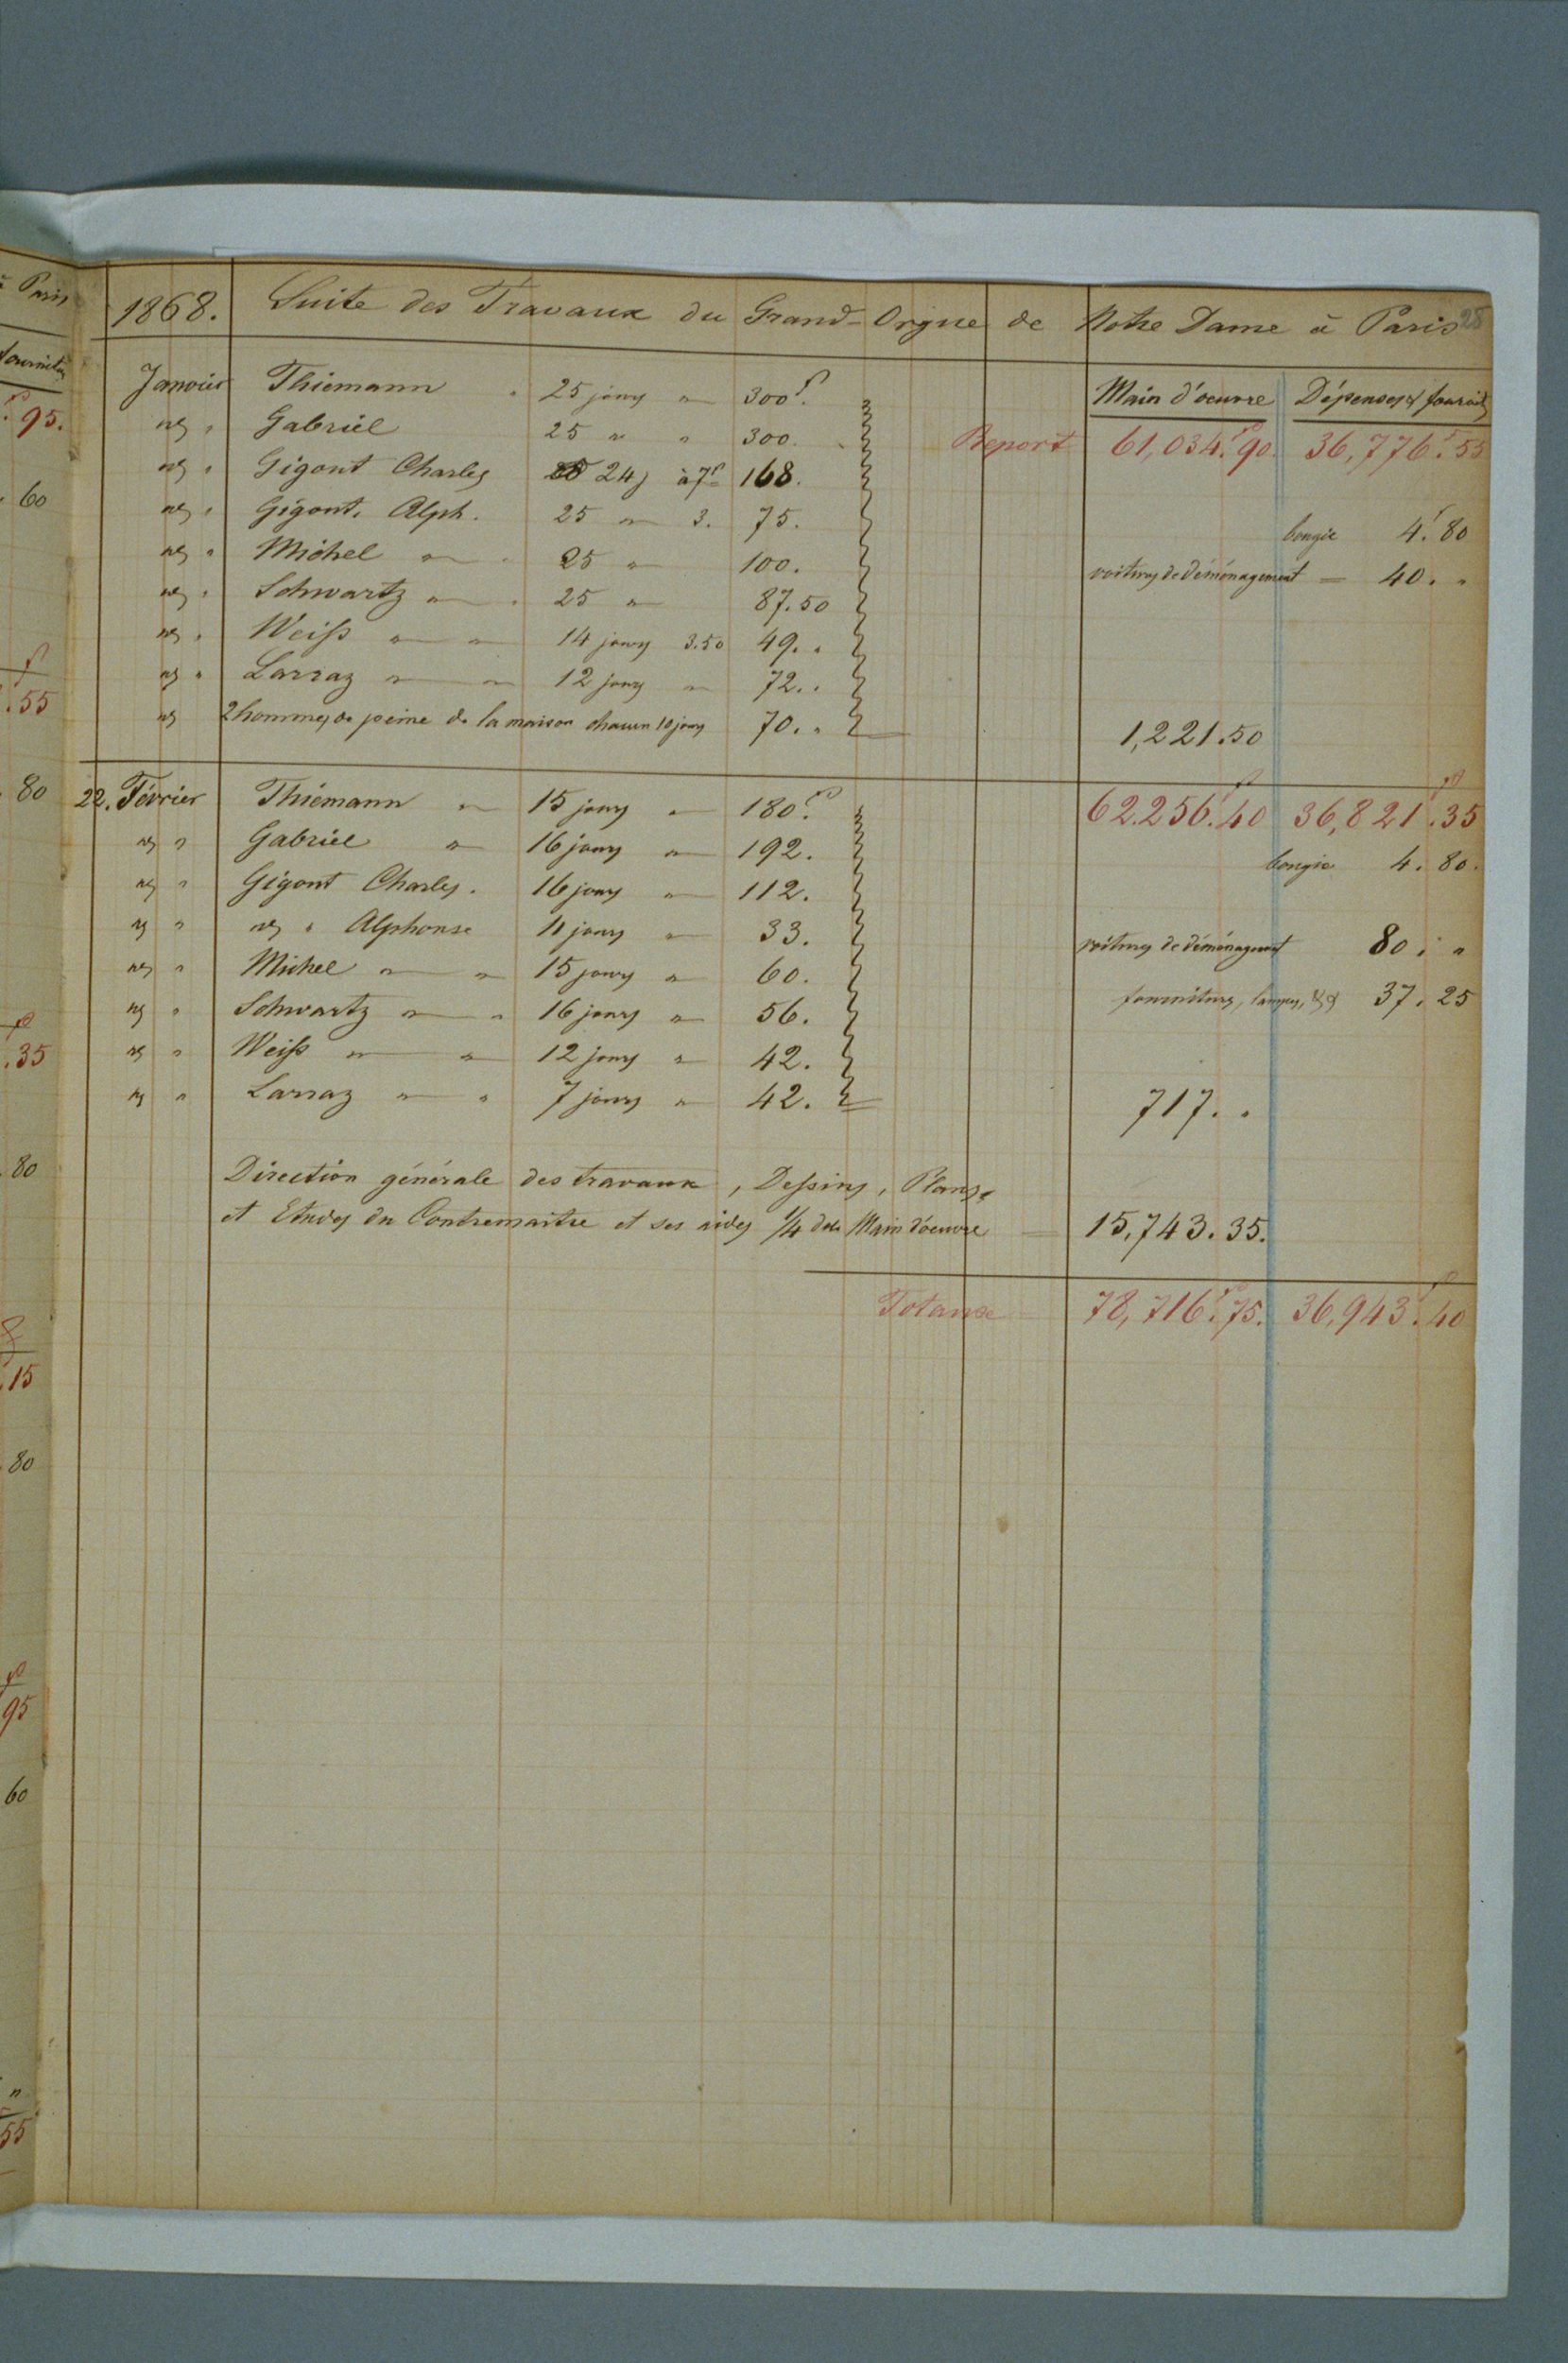 1868. Suite des Travaux du Grand-Orgue de Notre Dame à Paris 28
Main d'oeuvre Dépenses & fournit
Report 61,034.f 90 36,776.f 55
Janvier Thiemann " 25 jours " 300f.
" Gabriel 25 " " 300.
" Gigont Charles 24j à 7f 168.
" Gigont. Alph. 25 " 3. 75.
bougie 4.f 80
" Michel " 25 " 100.
voitures de déménagement — 40. "
" Schwartz " " 25 " 87.50
" Weiss " " 14 jours 3.50 49. "
" Larraz " " 12 jours " 72. "
2 hommes de peine de la maison chacun 10 jours 70. "
1,221.50
62.256.f 40 36,821.f 35
22. Février Thiémann " 15 jours " 180.f
" " Gabriel " 16 jours " 192.
bougie 4. 80.
" " Gigont Charles. 16 jours " 112.
" " " Alphonse 11 jours " 33.
voitures de déménagement 80. "
" " Michel " " 15 jours " 60.
fournitures, lampes, && 37. 25
" " Schwartz " " 16 jours " 56.
" " Weiss " " 12 jours " 42.
" " Larraz " " 7 jours " 42.
717. "
Direction générale des travaux, Dessins, Plans,
et Etudes du Contremaitre et ses aides 1/4 de la Main d'oeuvre 15,743.35.
Totaux 78,716.f 75. 36,943.f 40
à Paris
fournitures
95.
60
55
80
35
80
15
80
95
60
"
55